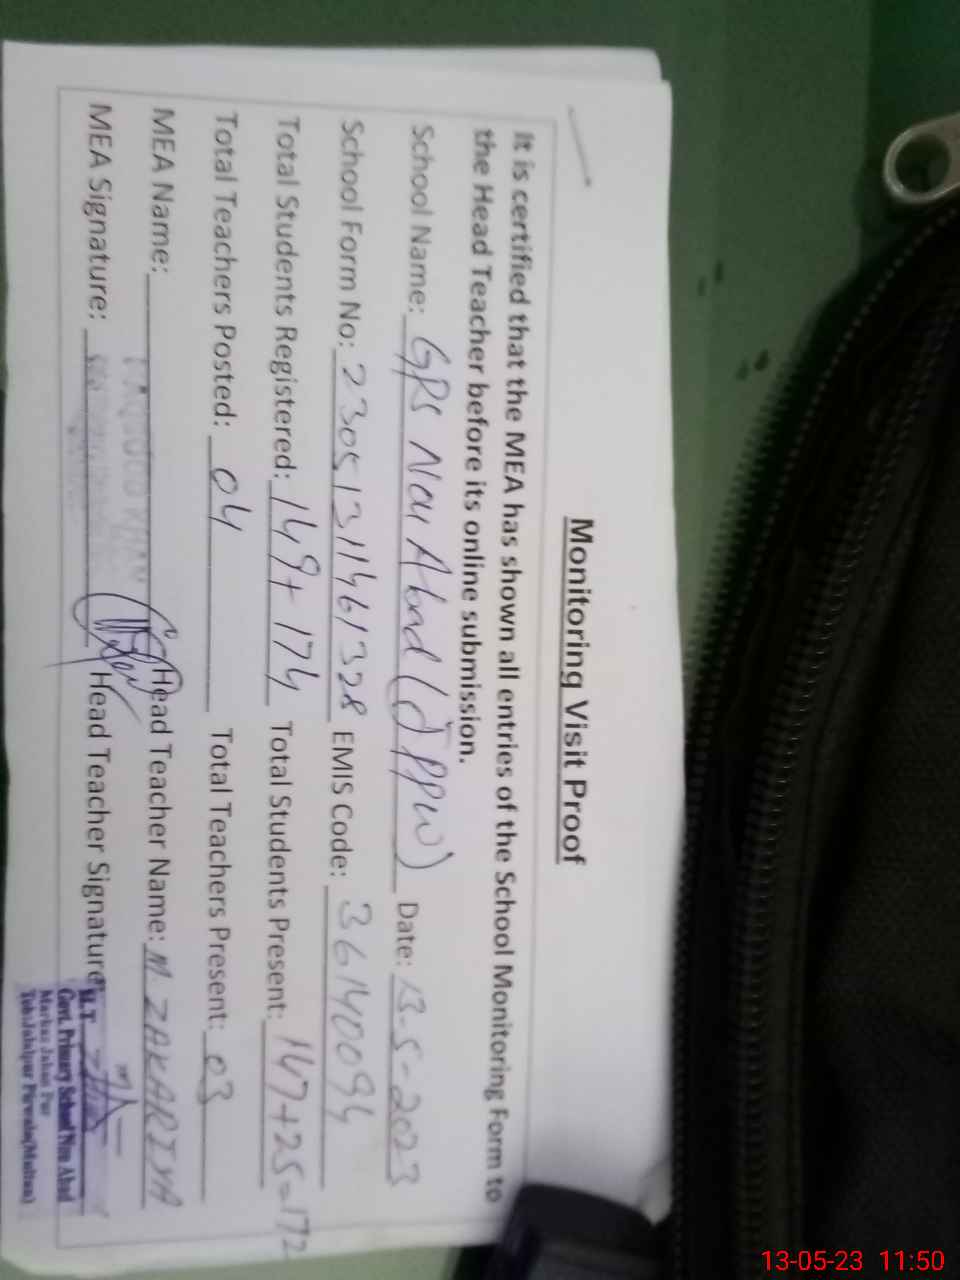 Monitoring Visit Proof
It is certified that the MEA has shown all entries of the School Monitoring Form to
the Head Teacher before its online submission.
School Name: GPS Nau Abad (JPPW) Date: 13-5-2023
School Form No: 23051311461328 EMIS Code: 36140094
Total Students Registered: 149+174 Total Students Present: 147+25=172
Total Teachers Posted: 04 Total Teachers Present: 03
MEA Name: Head Teacher Name: M ZAKARIYA
MEA Signature: Head Teacher Signature
H.T
Govt. Primary School Nau Abad
Markaz Jahan Pur
Teh: Jalalpur Pirwala (Multan)
13-05-23 11:50